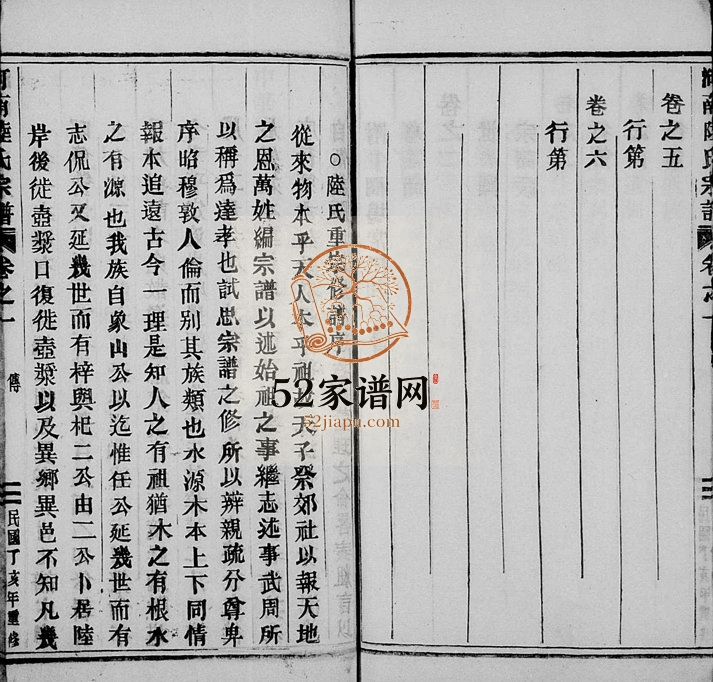 卷之五
行第
卷之六
行第
○陸氏重宗修譜序
從來物本乎天人本乎祖故天子祭郊社以報天地
之恩萬姓編宗譜以述始祖之事繼志述事武周所
以稱爲達孝也試思宗譜之修所以辨親疏分尊卑
序昭穆敦人倫而別其族類也水源木本上下同情
報本追遠古今一理是知人之有祖猶木之有根水
之有源也我族自象山公以迄惟任公延幾世而有
志侃公又延幾世而有梓與杞二公由二公卜居陸
岸後徙壺漿口復徙壺漿以及異鄉異邑不知凡幾
河南陸氏宗譜
卷之一
傳
民國丁亥年重修
52家谱网
52jiapu.com